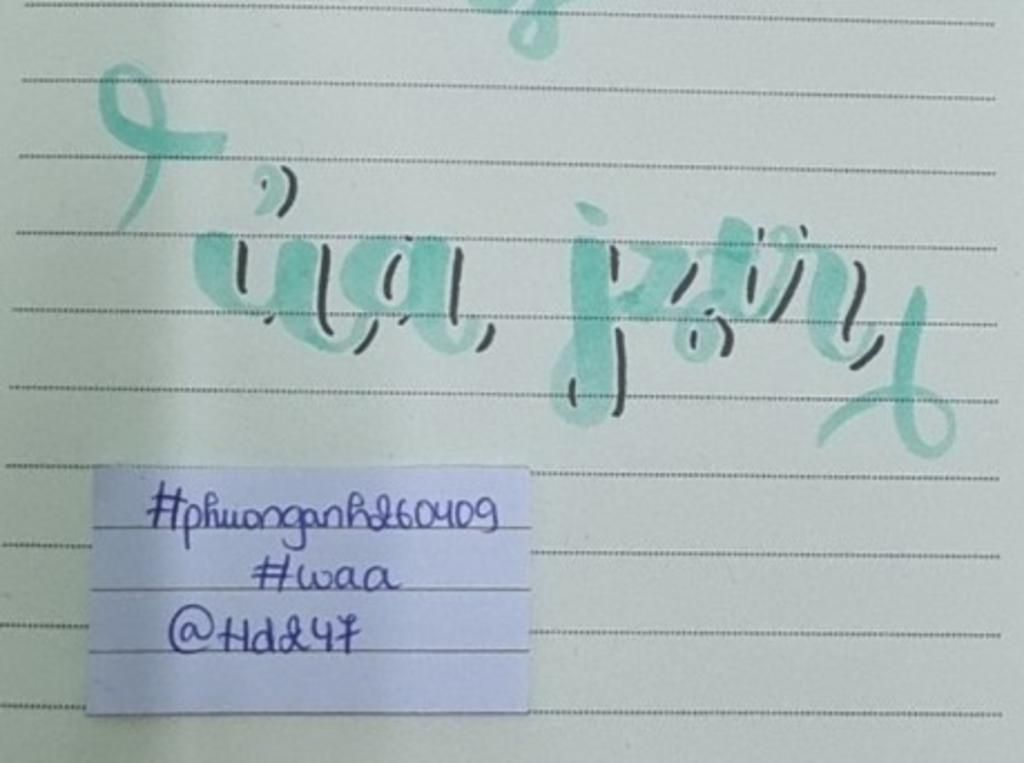 ủa jztr
#phuonganh260409
#waa
@Hd247